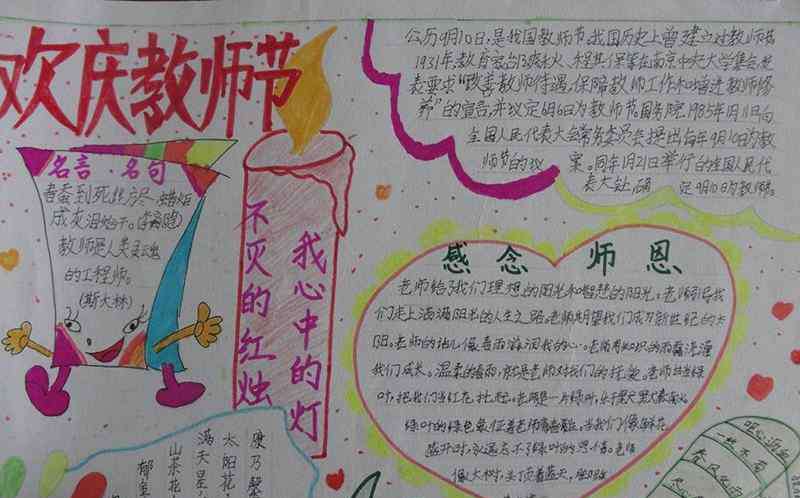 欢庆教师节
名言·名句
春蚕到死丝方尽,蜡炬
成灰泪始干。(李商隐)
教师是人类灵魂
的工程师。
(斯大林)
不灭的红烛
我心中的灯
公历9月10日,是我国教师节,我国历史上曾建立过教师节
1931年,教育家邰爽秋、程其保等在南京中央大学集会,发
表要求“改善教师待遇,保障教师工作和增进教师修
养”的宣言,并议定6月6日为教师节。国务院1985年1月11日向
全国人民代表大会常务委员会提出每年9月10日为教
师节的议案。同年1月21日举行的全国人民代
表大处 确定9月10日为教师
感念师恩
老师给了我们理想的阳光和智慧的阳光,老师引导我
们走上洒满阳光的人生之路。老师期望我们成为新世纪的太
阳。老师的话儿像春雨滋润我的心。老师用知识的雨露浇灌
我们成长。温柔的春雨,就是老师对我们的抚爱。老师甘当绿
叶,把我们当红花衬托。老师是一片绿叶,
绿叶的绿色象征着老师青春,当我们像鲜花
盛开时,永远忘不了绿叶的恩情。老师
像大树,头顶着蓝天,
康乃馨
太阳花
满天星
山茶花
郁金